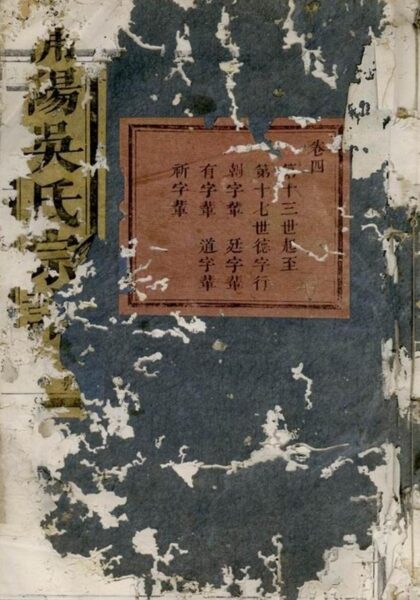 卷四
十三世起至
第十七世德字行
朝字輩 廷字輩
有字輩 道字輩
祈字輩
陽吳氏宗